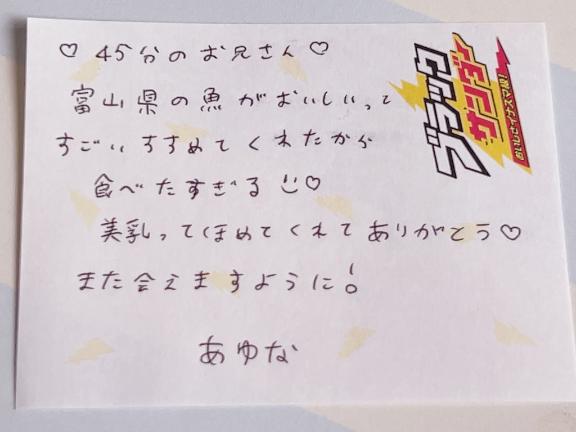 ♡ 45分のお兄さん ♡
富山県の魚がおいしいって
すごいすすめてくれたから
食べたすぎる ♡
美乳ってほめてくれてありがとう♡
また会えますように!
あゆな
ブラック
サンダー
おいしさイナズマ級!